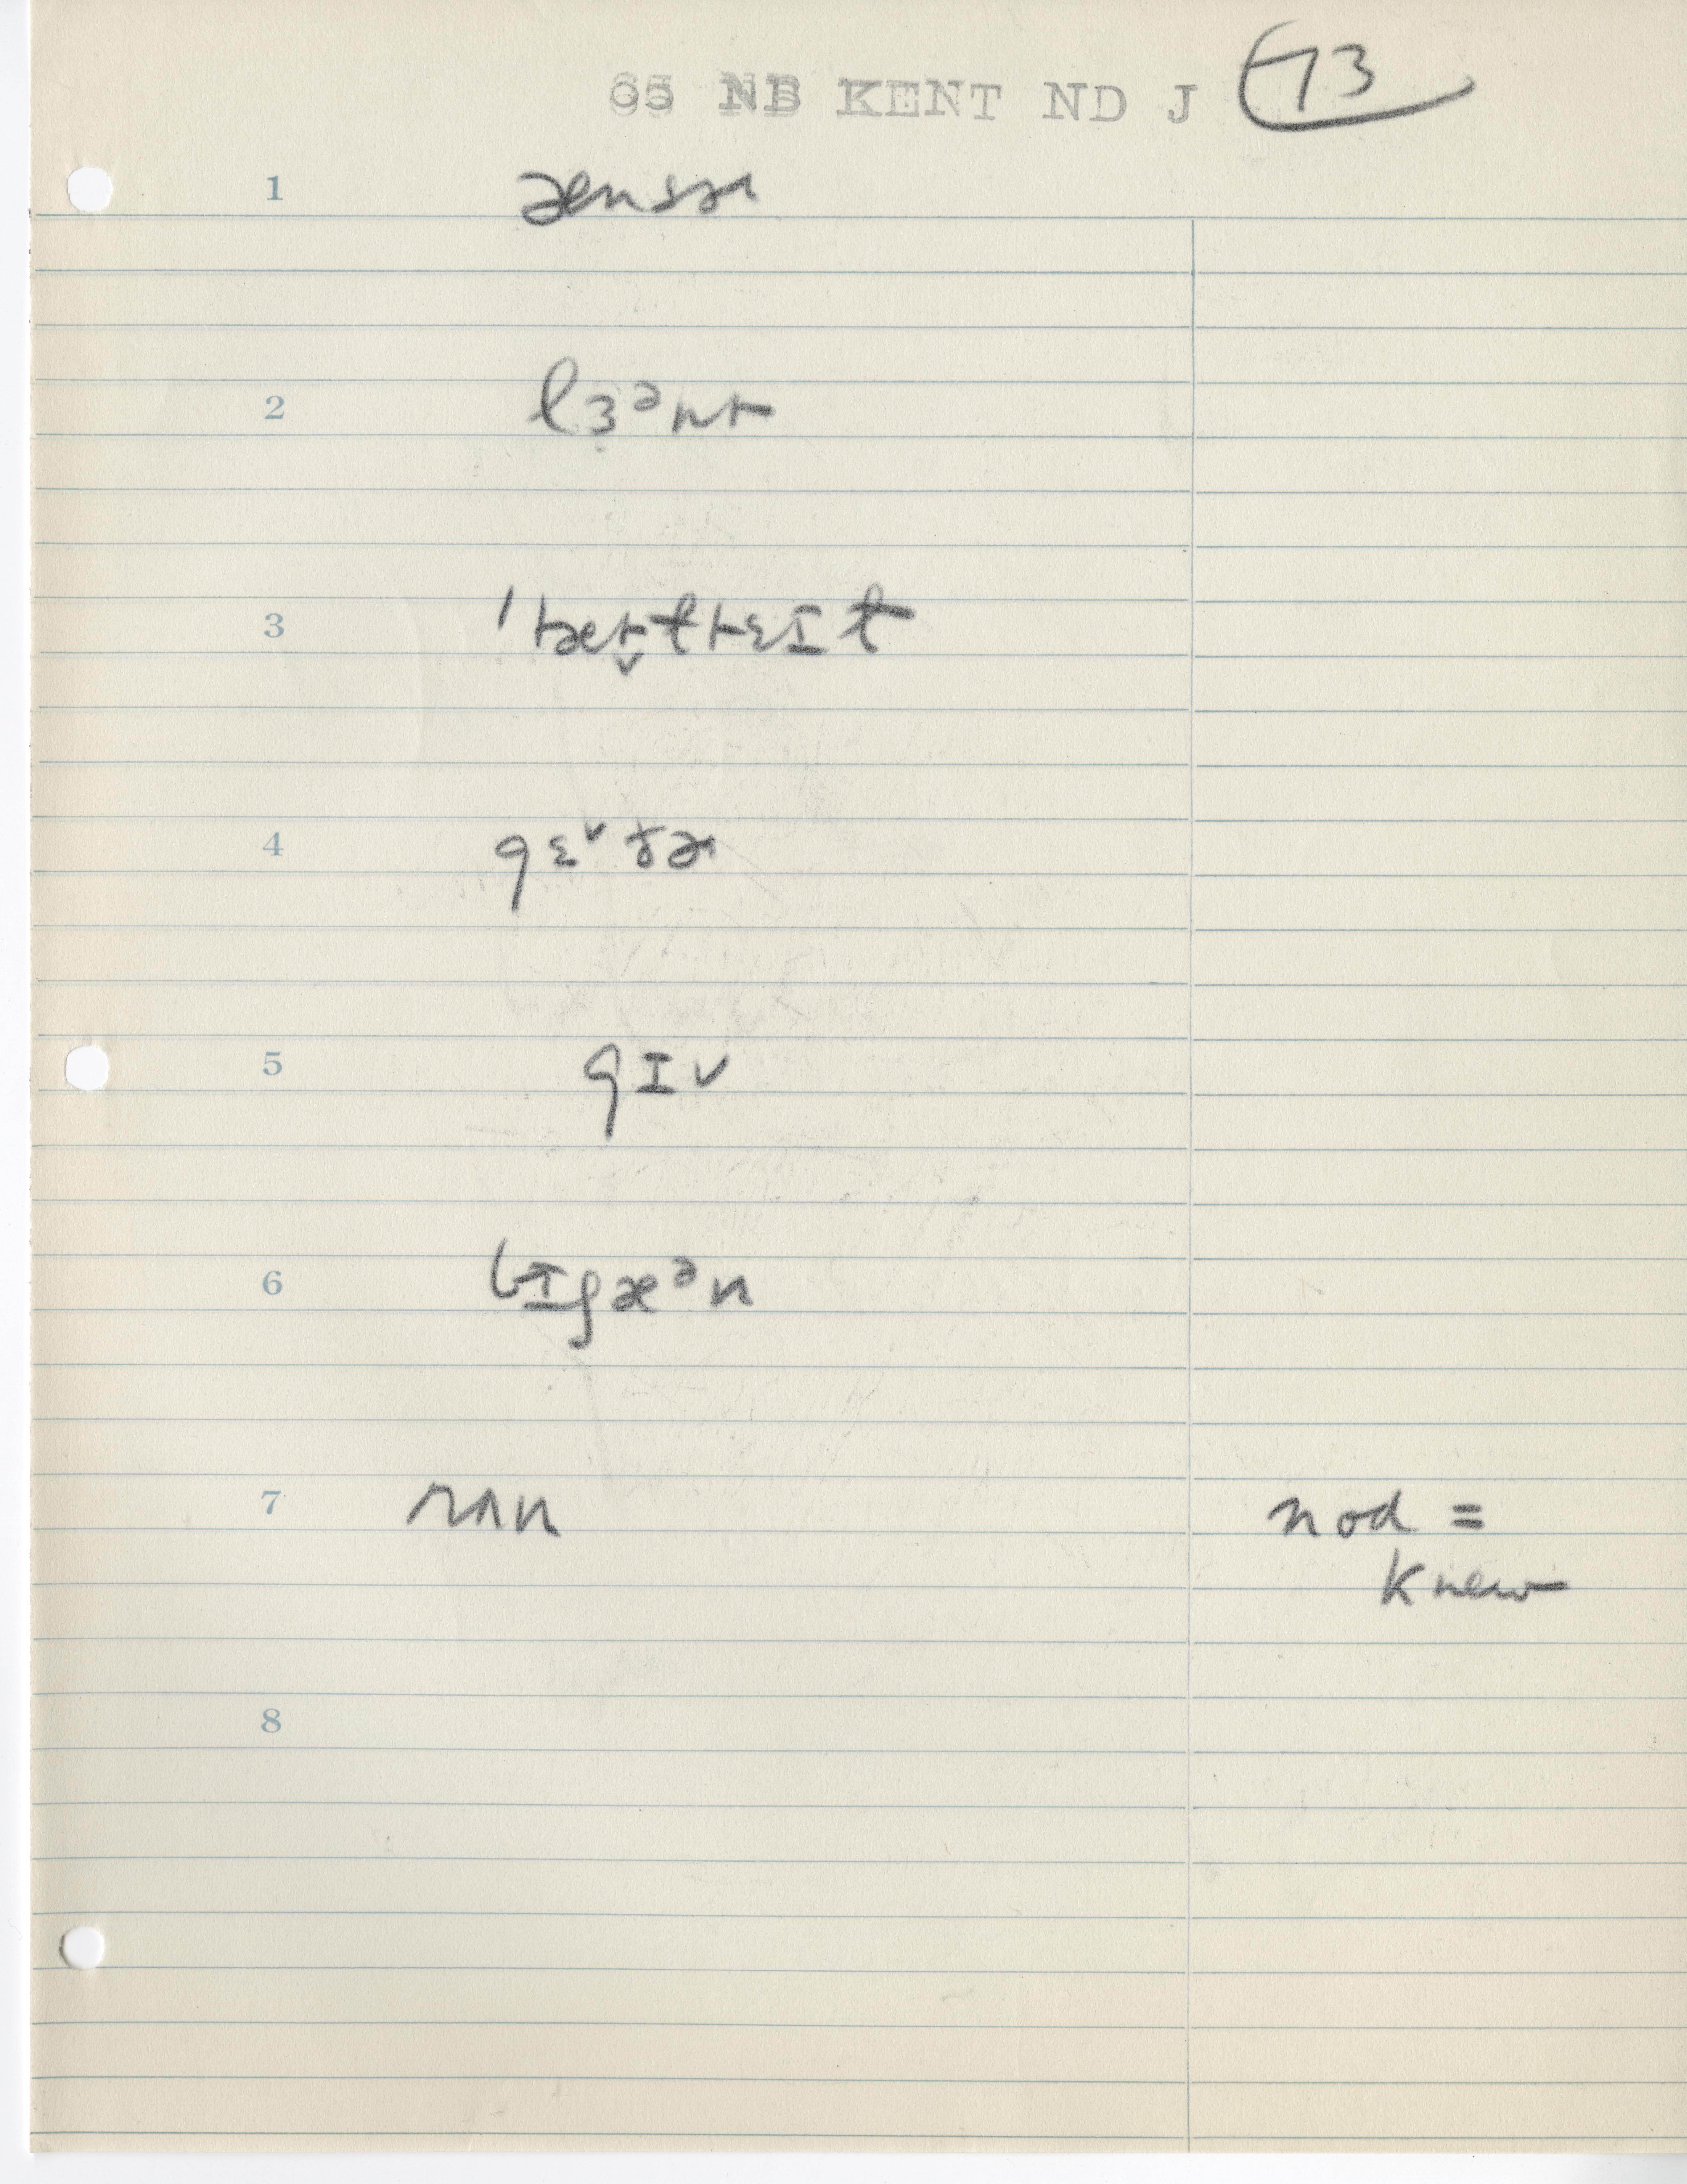 65 NB KENT ND J 73
1 ænsɚ
2 lɜᵊnt
3 ˈbæt̬tɛɪt
4 gɛᵛðɚ
5 gɪv
6 bɪgæᵊn
7 rʌn nod =
knew
8